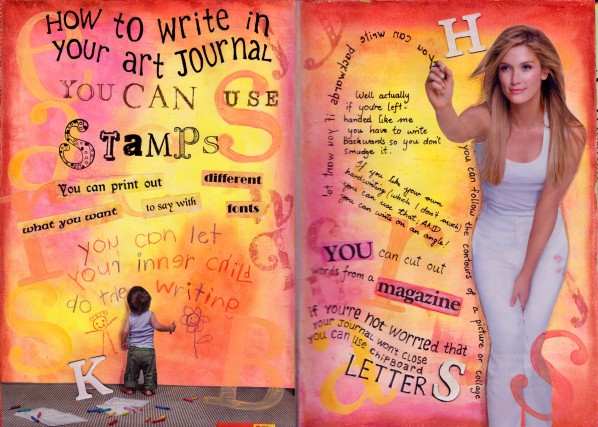 HOW to WRITE IN
YOUR ART JOURNAL
YOU CAN USE
STAMPS
S
You can print out different
what you want to say with fonts
you can let
your inner child
do the writing
K
B
H
you can write backwards if you want to
Well actually
if you're left-
handed like me
you have to write
backwards so you don't
smudge it.
If you like your own
handwriting (which I don't much)
you can use that, AND
you can write on an angle!
you can follow the contours of a picture or collage
YOU can cut out
words from a magazine
if you're not worried that
your journal won't close
you can use chipboard
LETTERS
S
a
S